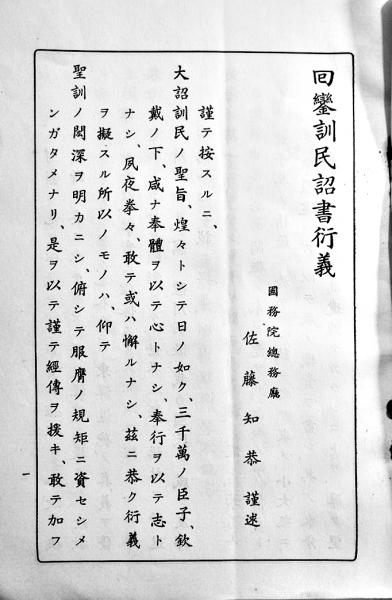 回鑾訓民詔書衍義
國務院總務廳
佐藤知恭謹述
謹テ按スルニ、
大詔訓民ノ聖旨、煌々トシテ日ノ如ク、三千萬ノ臣子、欽
戴ノ下、咸ナ奉體ヲ以テ心トナシ、奉行ヲ以テ志ト
ナシ、夙夜拳々、敢テ或ハ懈ルナシ、茲ニ恭ク衍義
ヲ擬スル所以ノモノハ、仰テ
聖訓ノ閎深ヲ明カニシ、俯シテ服膺ノ規矩ニ資セシメ
ンガタメナリ、是ヲ以テ謹テ經傳ヲ援キ、敢テ加フ
一